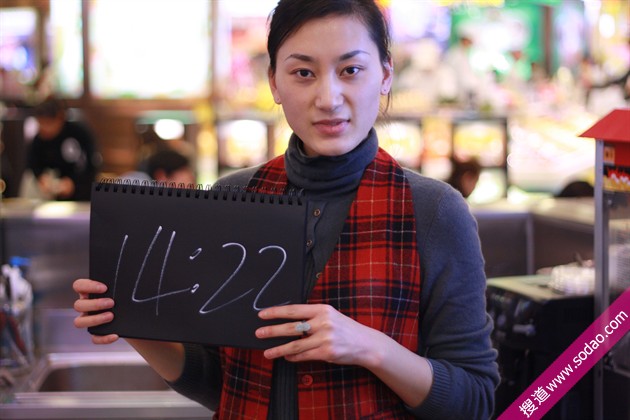 14:22
搜道www.sodao.com